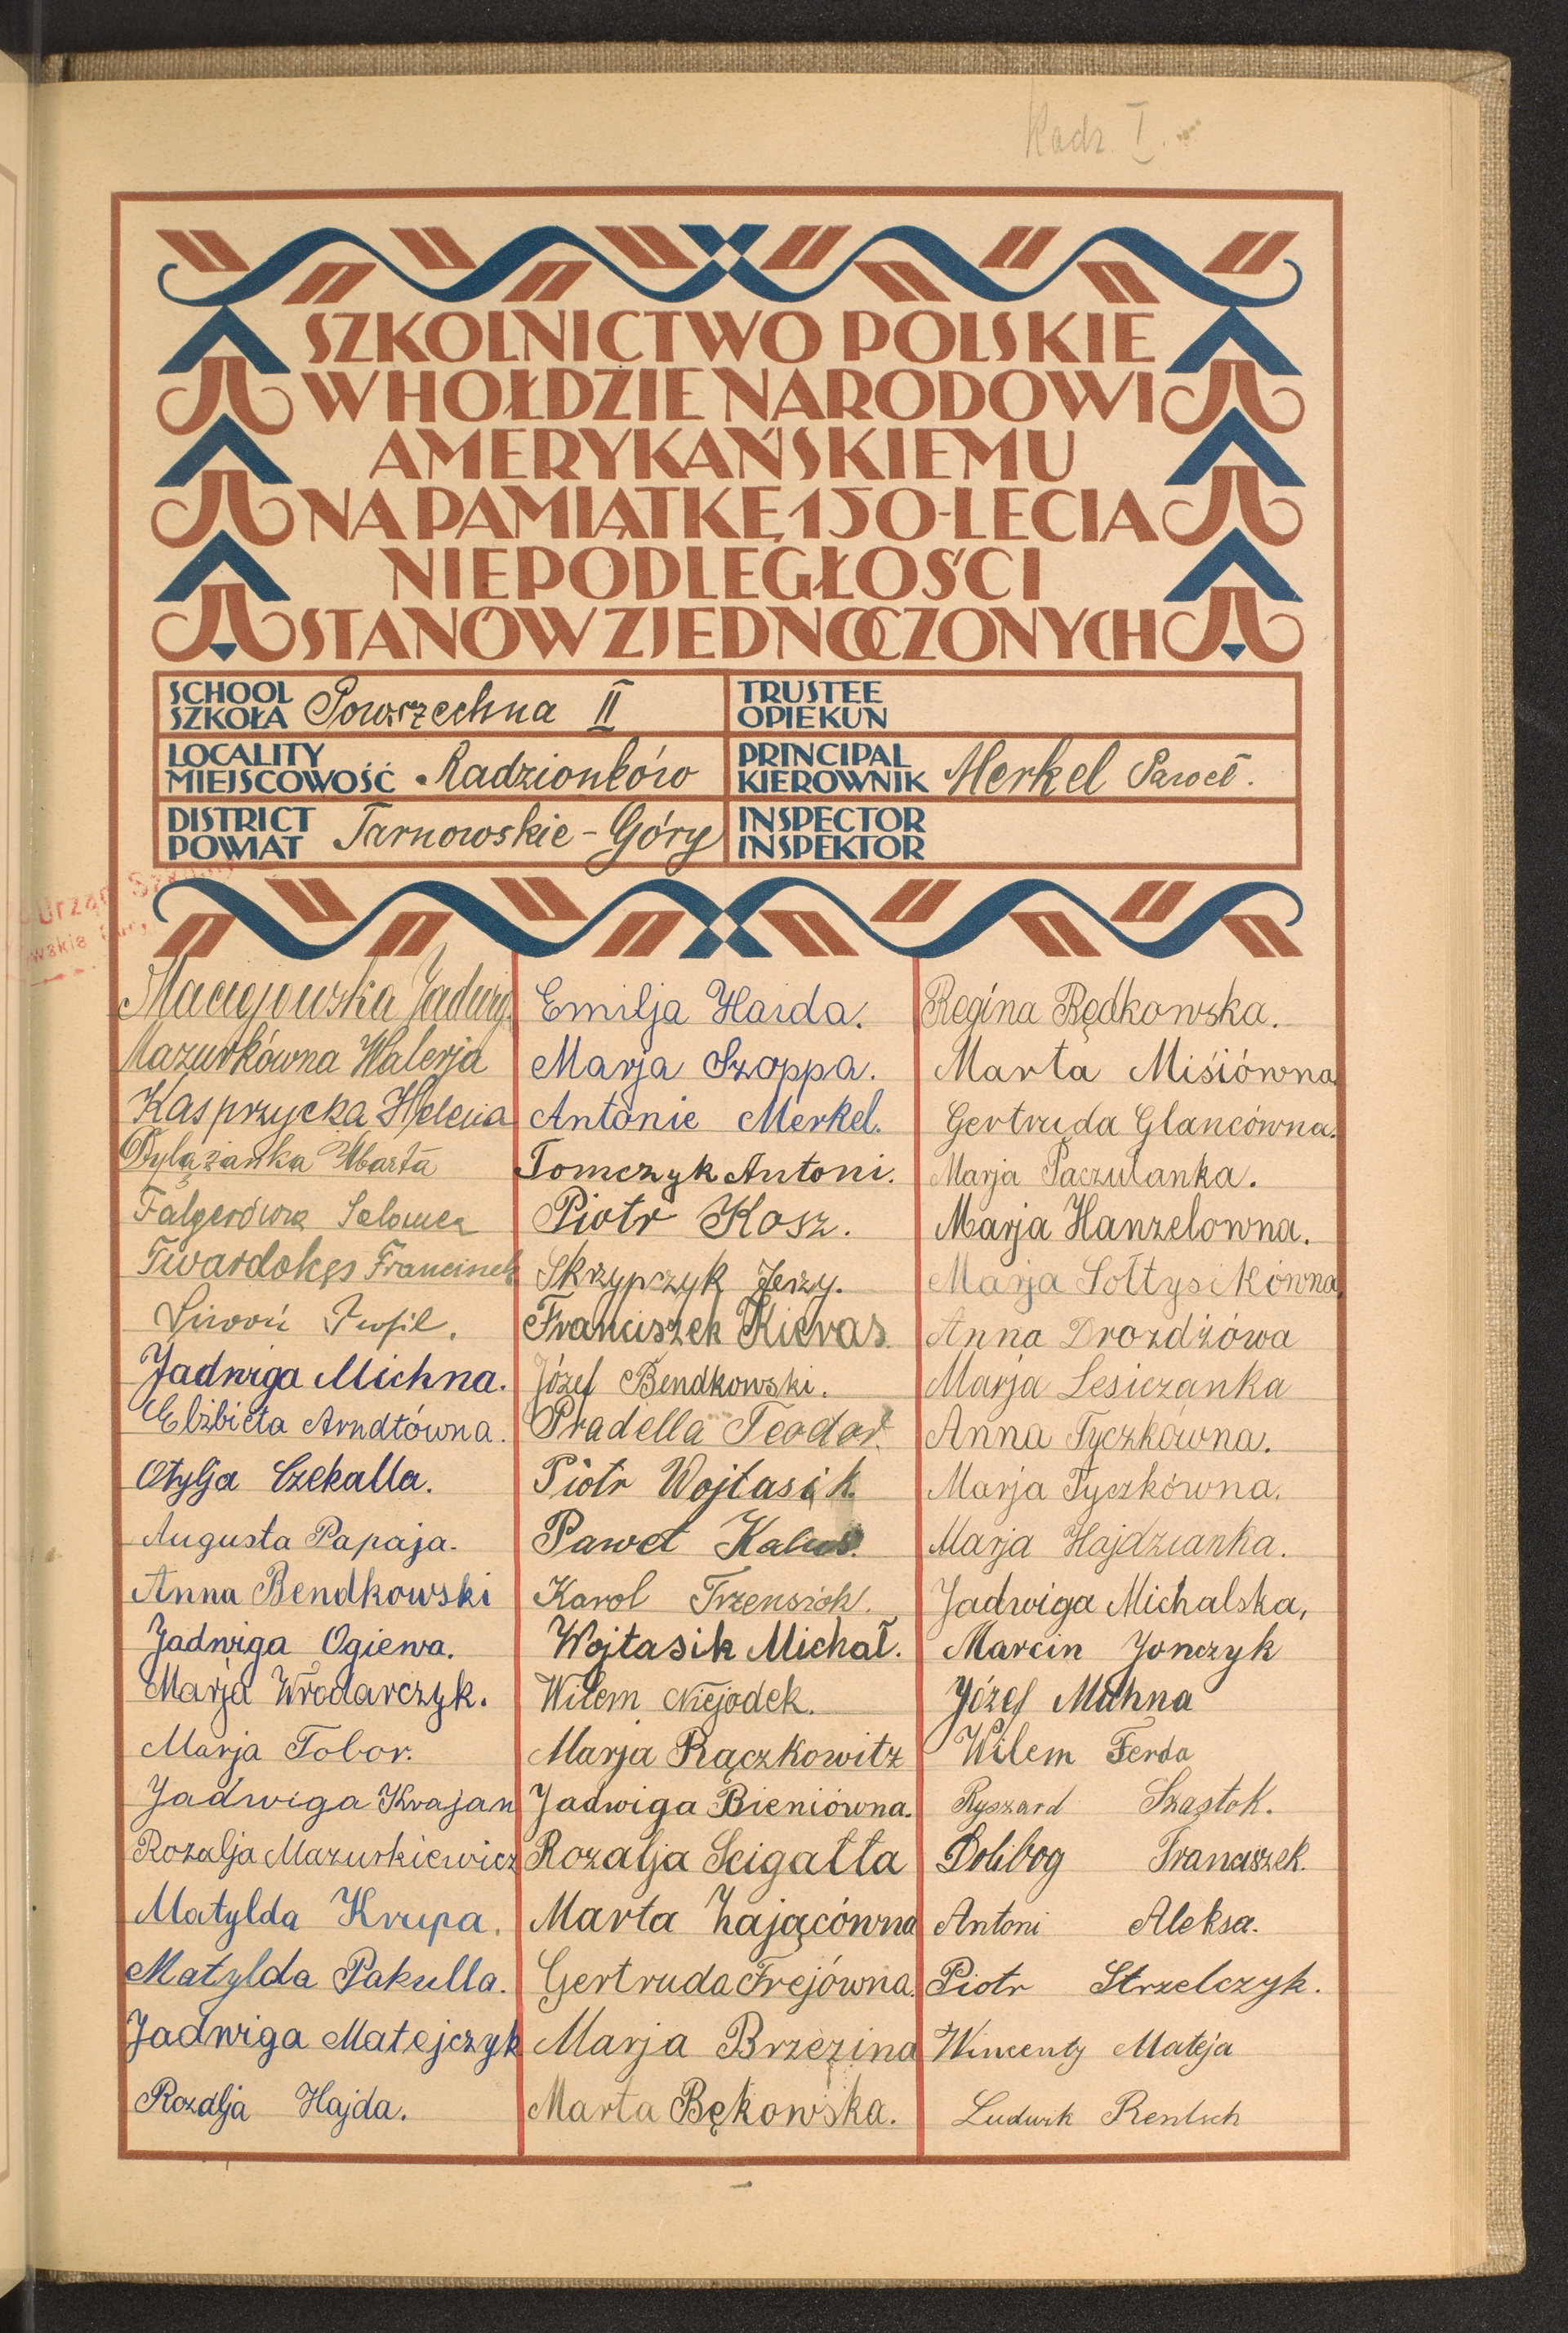 Radz. I.
SZKOLNICTWO POLSKIE
W HOŁDZIE NARODOWI
AMERYKAŃSKIEMU
NA PAMIĄTKĘ 150-LECIA
NIEPODLEGŁOŚCI
STANÓW ZJEDNOCZONYCH
SCHOOL
SZKOŁA Powszechna II
TRUSTEE
OPIEKUN
LOCALITY
MIEJSCOWOŚĆ Radzionków
PRINCIPAL
KIEROWNIK Merkel Paweł.
DISTRICT
POWIAT Tarnowskie-Góry
INSPECTOR
INSPEKTOR
Urząd Szkolny
Maciejowska Jadwig.
Mazurkówna Walerja
Kasprzycka Helena
Marta
Salomea
Twardokęs Francisz
Jadwiga Michna.
Elżbieta Arndtówna.
Otylja Czekalla.
Augusta Papaja.
Anna Bendkowski
Jadwiga Ogiewa.
Marja Włodarczyk.
Marja Tobor.
Jadwiga Krajan
Rozalja Mazurkiewicz
Matylda Krupa.
Matylda Pakulla.
Jadwiga Matejczyk
Rozalja Hajda.
Emilja Haida.
Marja Szoppa.
Antonie Merkel.
Tomczyk Antoni.
Piotr Kosz.
Skrzypczyk Jerzy.
Franciszek Kieras.
Józef Bendkowski.
Pradella Teodor.
Piotr Wojtasik.
Paweł Kalus.
Karol Trzensiok.
Wojtasik Michał.
Wilem Niejodek.
Marja Rączkowitz
Jadwiga Bieniówna.
Rozalja Scigałła
Marta Zającówna
Gertruda Frejówna.
Marja Brzezina
Marta Bękowska.
Regina Będkowska.
Marta Misiówna
Gertruda Glancówna.
Marja Paczulanka.
Marja Hanzelowna.
Marja Sołtysikówna.
Anna Drozdżówa
Marja Lesiczanka
Anna Tyczkówna.
Marja Tyczkówna.
Marja Hajdzianka.
Jadwiga Michalska,
Marcin Jonczyk
Józef Muhna
Wilem Ferda
Ryszard Szastok.
Dolibog Franciszek.
Antoni Aleksa.
Piotr Strzelczyk.
Wincenty Mateja
Ludwik Rentsch